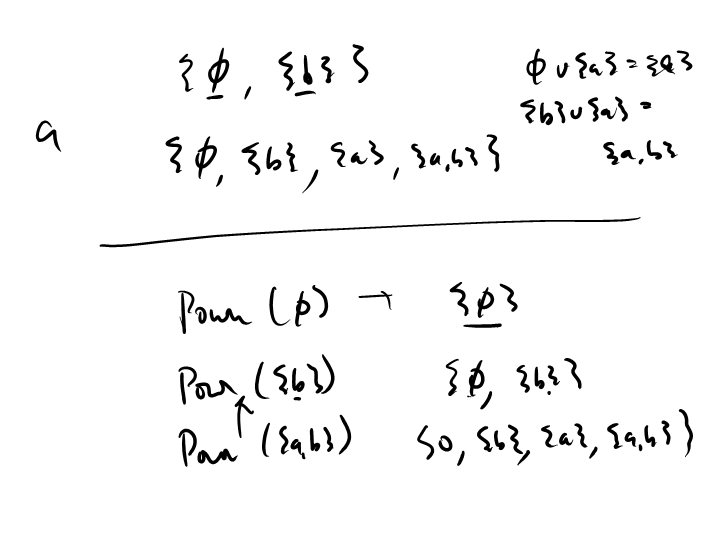 {ϕ, {b}}
ϕ ∪ {a} = {a}
{b} ∪ {a} =
{a,b}
a
{ϕ, {b}, {a}, {a,b}}
Power (ϕ) → {ϕ}
Power ({b}) {ϕ, {b}}
Power ({a,b}) {ϕ, {b}, {a}, {a,b}}